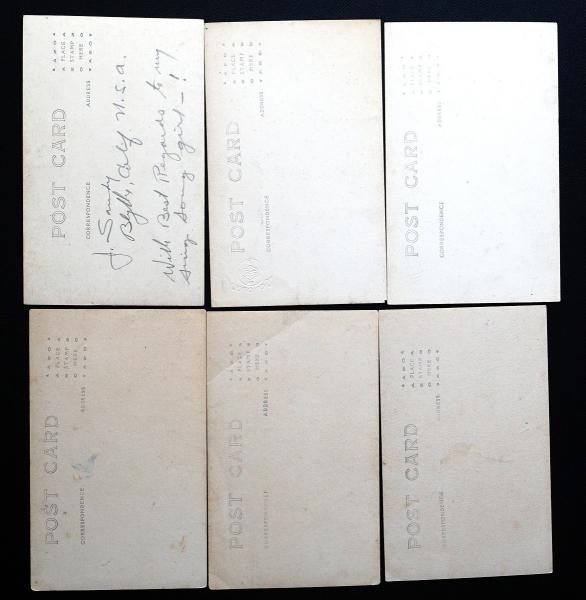 AZO
PLACE
STAMP
HERE
AZO
POST CARD
CORRESPONDENCE
ADDRESS
J. Sandy
Blythe, Calf. U.S.A.
With Best Regards to my
sing song girl - !
PLACE
STAMP
HERE
POST CARD
CORRESPONDENCE
ADDRESS
PLACE
STAMP
HERE
POST CARD
CORRESPONDENCE
ADDRESS
PLACE
STAMP
HERE
POST CARD
CORRESPONDENCE
ADDRESS
PLACE
STAMP
HERE
POST CARD
CORRESPONDENCE
ADDRESS
PLACE
STAMP
HERE
POST CARD
CORRESPONDENCE
ADDRESS